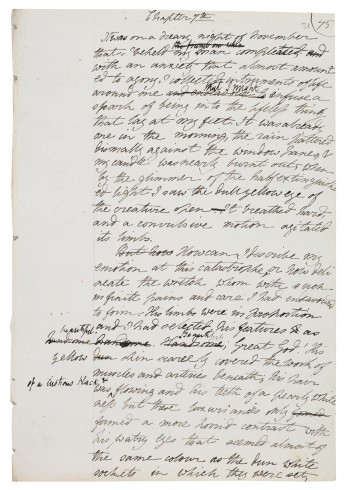 Chapter 7th
75
It was on a dreary night of November
that I beheld the frame on whic my man completeed and
with an anxiety that almost amount
ed to agony I collected instruments of life
around me and endea that I might infuse a
spark of being into the lifeless thing
that lay at my feet. It was already
one in the morning, the rain pattered
dismally against the window panes, &
my candle was nearly burnt out, when
by the glimmer of the half extinguish
ed light I saw the dull yellow eye of
the creature open. It breathed hard,
and a convulsive motion agitated
its limbs.
But how How can I describe my
emotion at this catastrophe, or how deli
neate the wretch whom with such
infinite pains and care I had endeavoured
to form. His limbs were in proportion
and I had selected his features as
beautiful handsome Handsome. Beautiful; Great God! His
yellow dun skin scarcely covered the work of
muscles and arteries beneath; his hair
of a lustrous black & was flowing and his teeth of a pearly white
ness but these luxuriances only
formed a more horrid contrast with
his watry eyes that seemed almost of
the same colour as the dun white
sockets in which they were set,